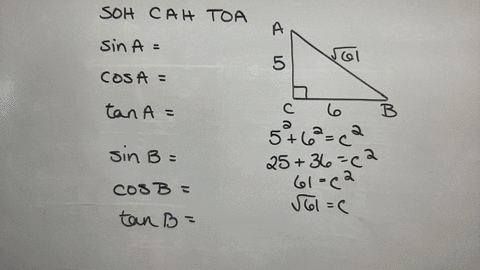 SOH CAH TOA
sin A =
cos A =
tan A =
sin B =
cos B =
tan B =
A
√61
5
C
6
B
5² + 6² = c²
25 + 36 = c²
61 = c²
√61 = c